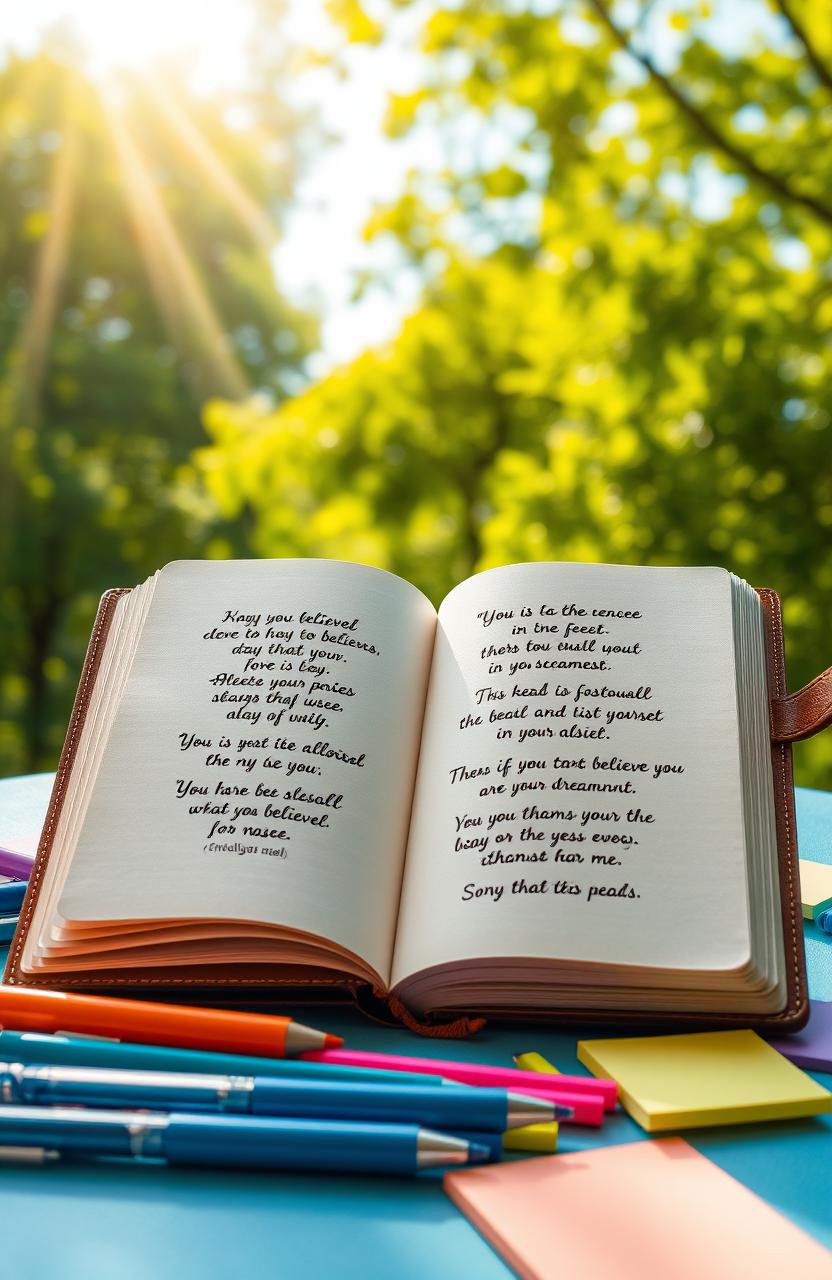 Kagy you believel
dove to hoy to believrs,
day that your.
Fore is Loy.
Aleete your paries
slarys that wsee,
alay of wnily.
You is yest ite alloviod
the ny be you'.
"You hore bee slesall
what you believel.
for nasee.
"You is to the
in the feeet.
thers tou eusll yout
in yo, sccamest.
This kead is fostouall
the beatl and list yourset
in your alsiet.
Thers if you tart believe you
are your dreamnnt.
You you thams your the
boay or the yess eveo.
thamst har me.
Sony that ths peads.